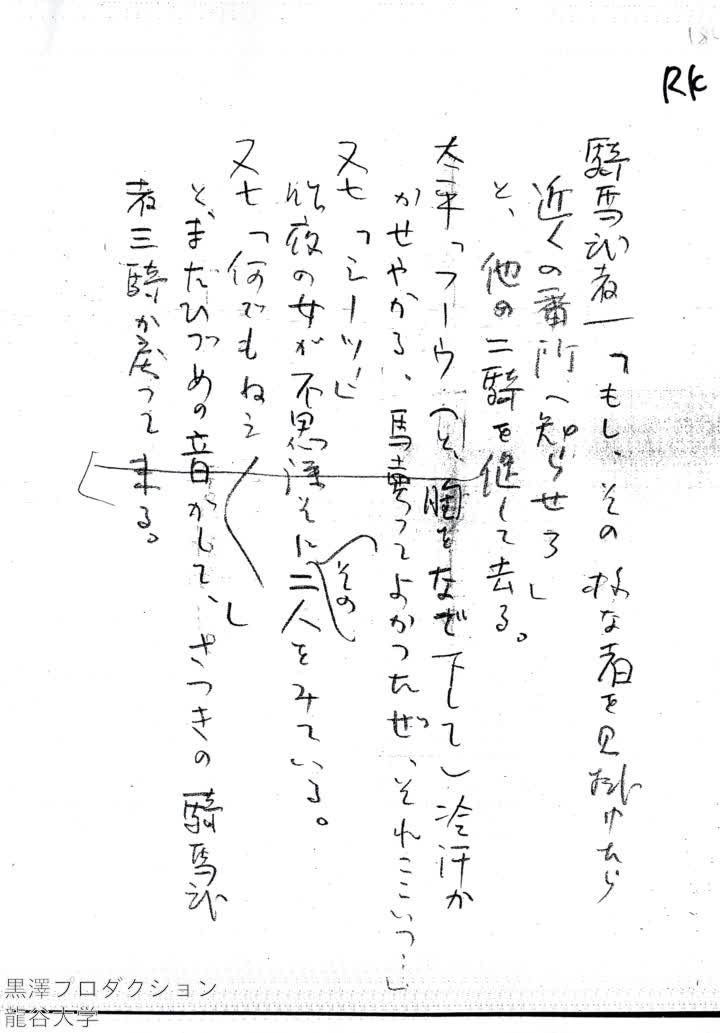 RK
騎馬武者一「もし、その様な者を見掛けたら
近くの番所へ知らせろ」
と、他の二騎を促して去る。
太平「フーウ(と、胸をなで下して)冷汗か
かせやがる、馬売ってよかったぜ、それにこいつ…」
又七「シーッ!」
昨夜の女が不思議そに二人をみている。
その
又七「何でもねえ 」
と、またひづめの音がして、さっきの騎馬武
者三騎が戻って来る。
黒澤プロダクション
龍谷大学